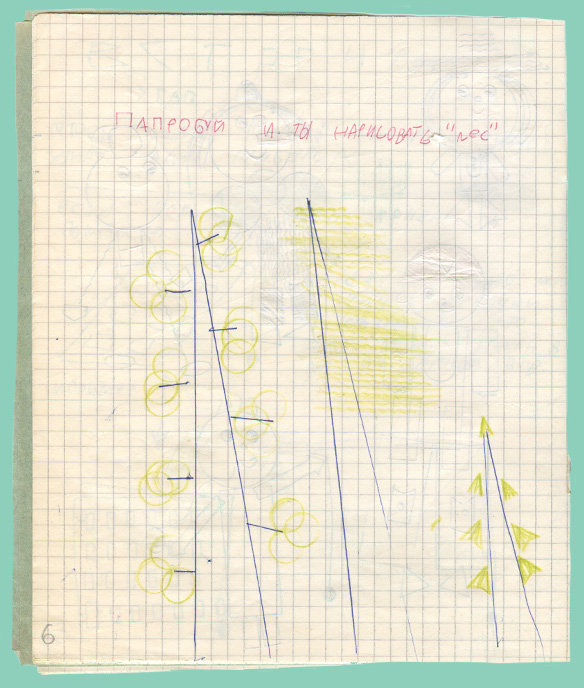 ПАПРОБУЙ И ТЫ НАРИСОВАТЬ "ЛЕС"
6